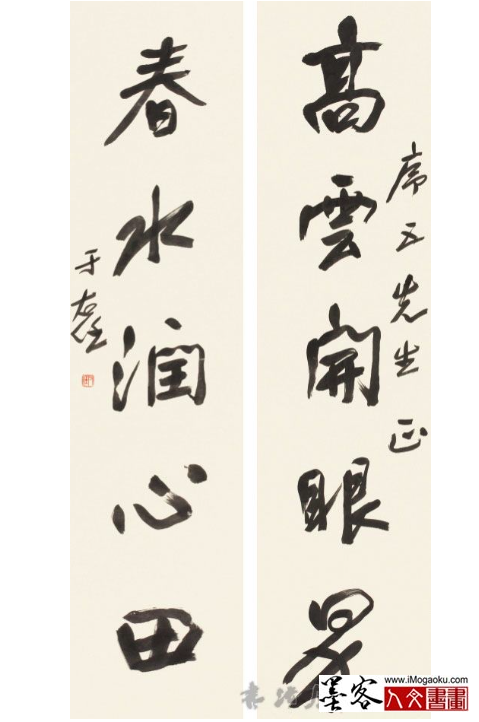 高雲開眼界
席五先生正
春水潤心田
于右任
www.iMogaoku.com
墨客
人文書畫